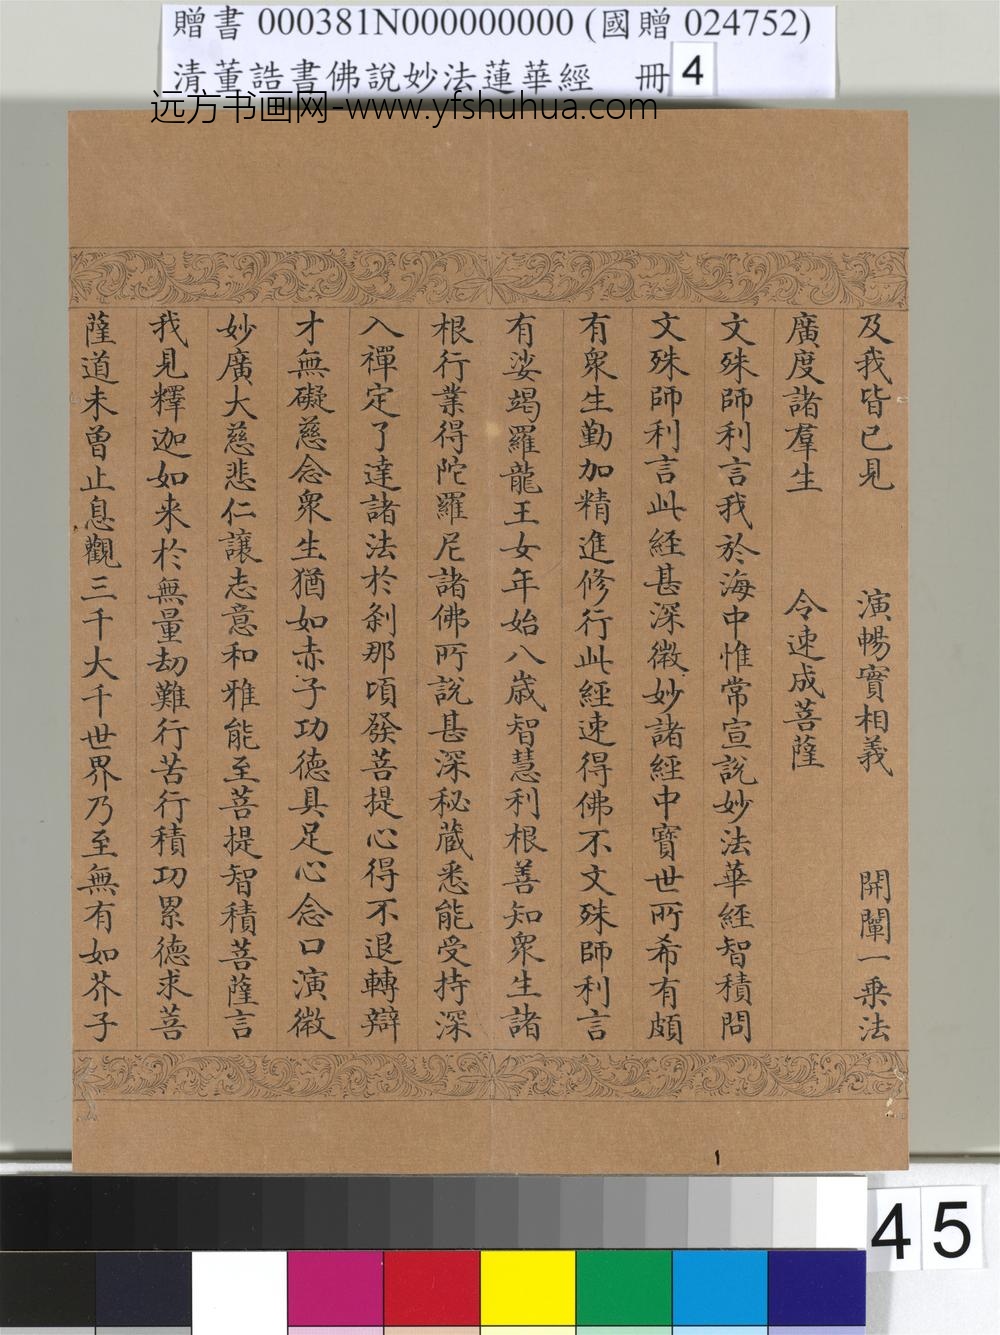 贈書 000381N000000000 (國贈 024752)
清董誥書佛說妙法蓮華經 冊 4
远方书画网-www.yfshuhua.com
及我皆已見 演暢實相義 開闡一乗法
廣度諸羣生 令速成菩薩
文殊師利言我於海中惟常宣說妙法華經智積問
文殊師利言此經甚深微妙諸經中寶世所希有頗
有衆生勤加精進修行此經速得佛不文殊師利言
有娑竭羅龍王女年始八歲智慧利根善知衆生諸
根行業得陀羅尼諸佛所說甚深秘藏悉能受持深
入禪定了達諸法於剎那頃發菩提心得不退轉辯
才無礙慈念衆生猶如赤子功德具足心念口演微
妙廣大慈悲仁讓志意和雅能至菩提智積菩薩言
我見釋迦如来於無量劫難行苦行積功累德求菩
薩道未曾止息觀三千大千世界乃至無有如芥子
1
45